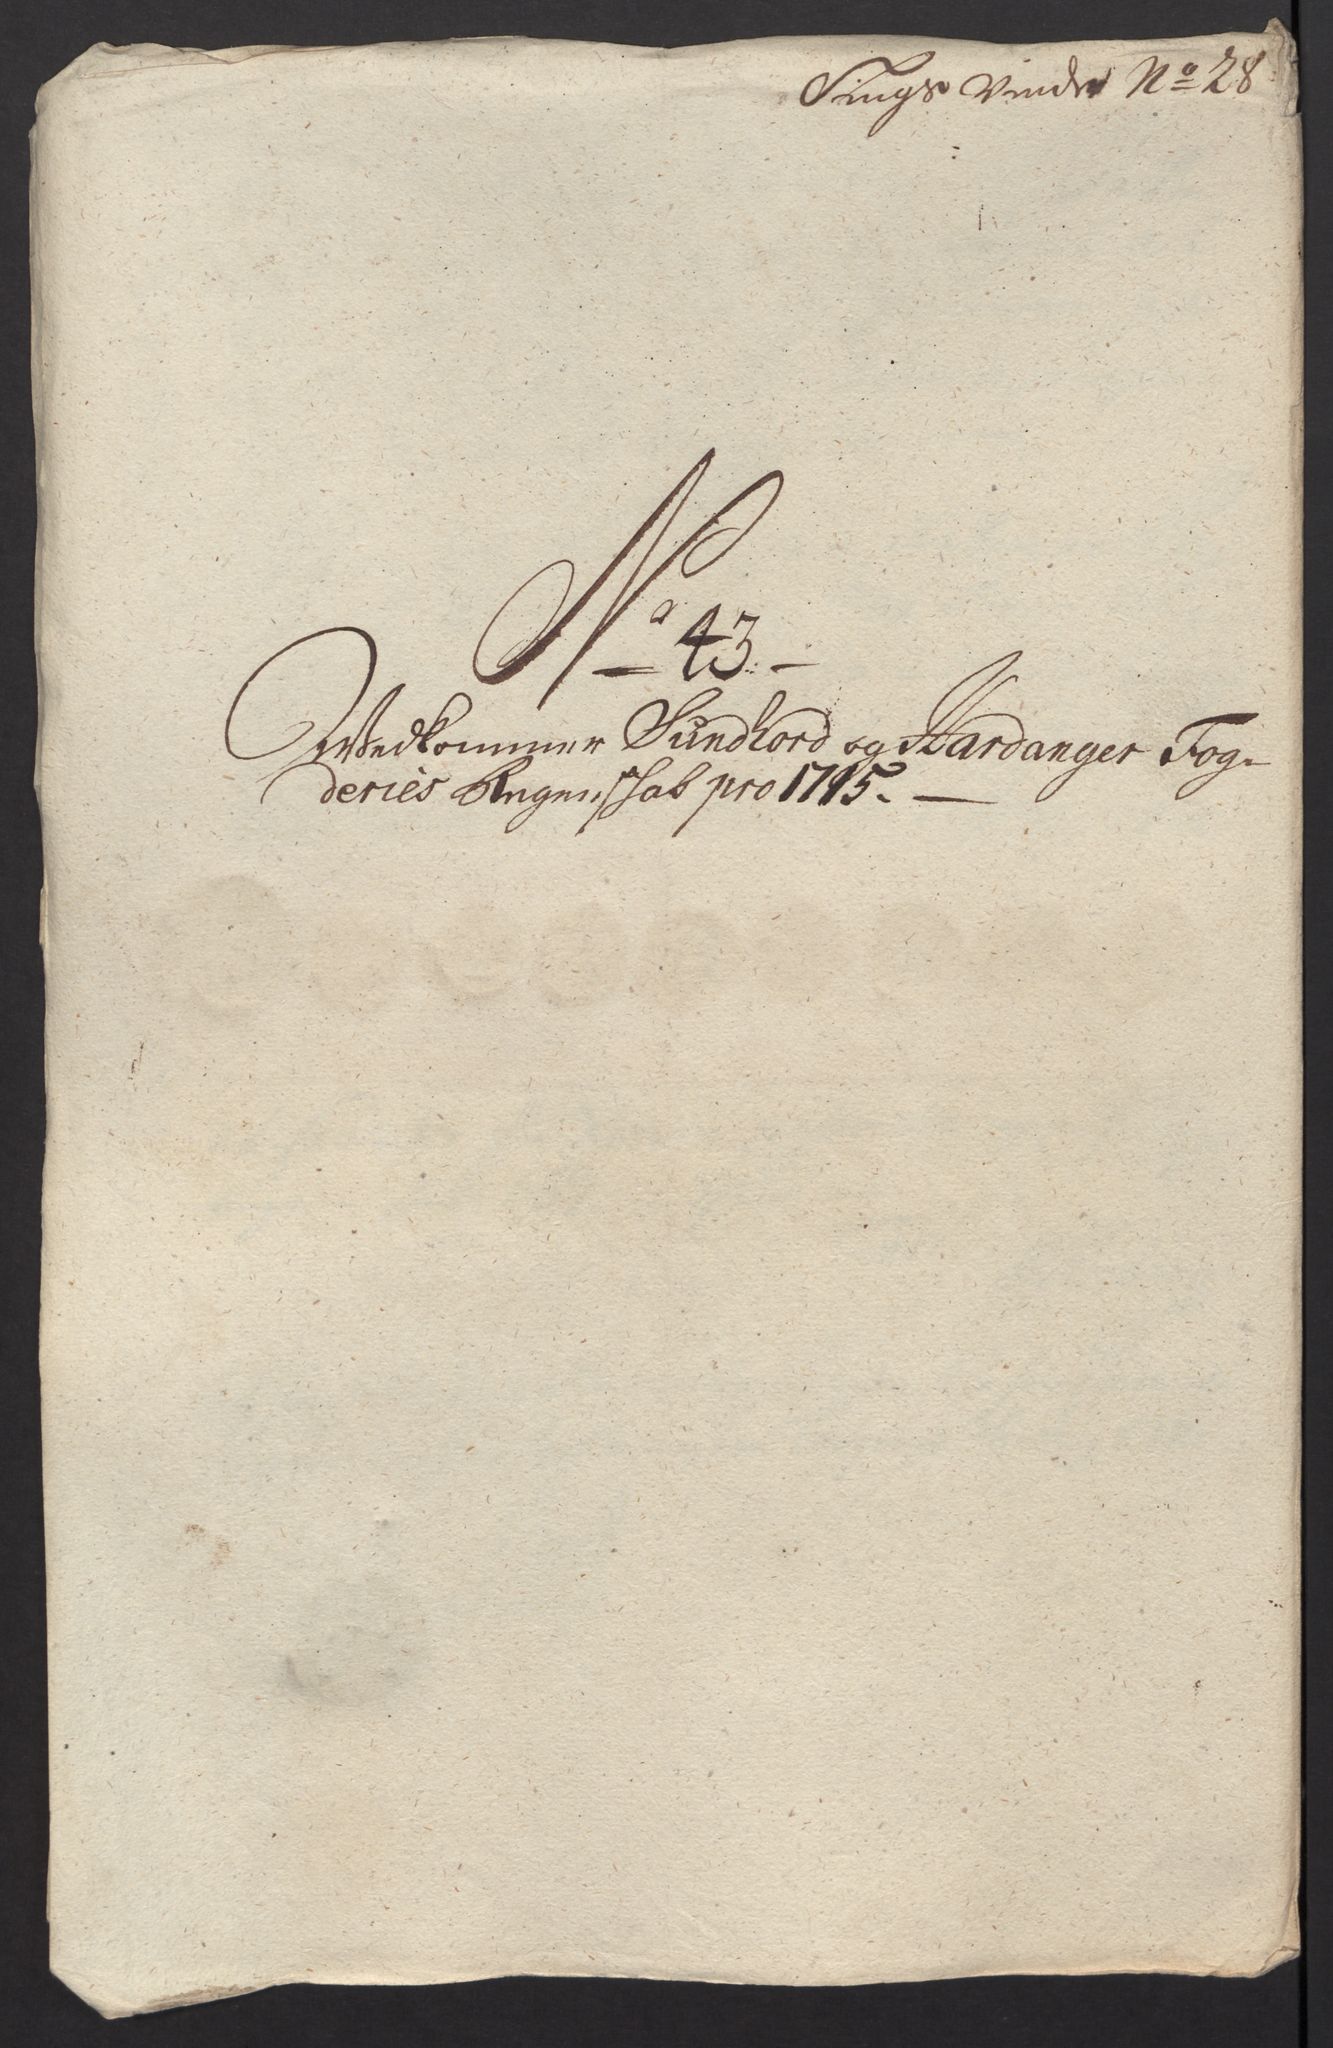 Tings Vindr No 28
No 43
Vedkommer Sundhord og Hardanger Fog-
deries Regenschab pro 1715.